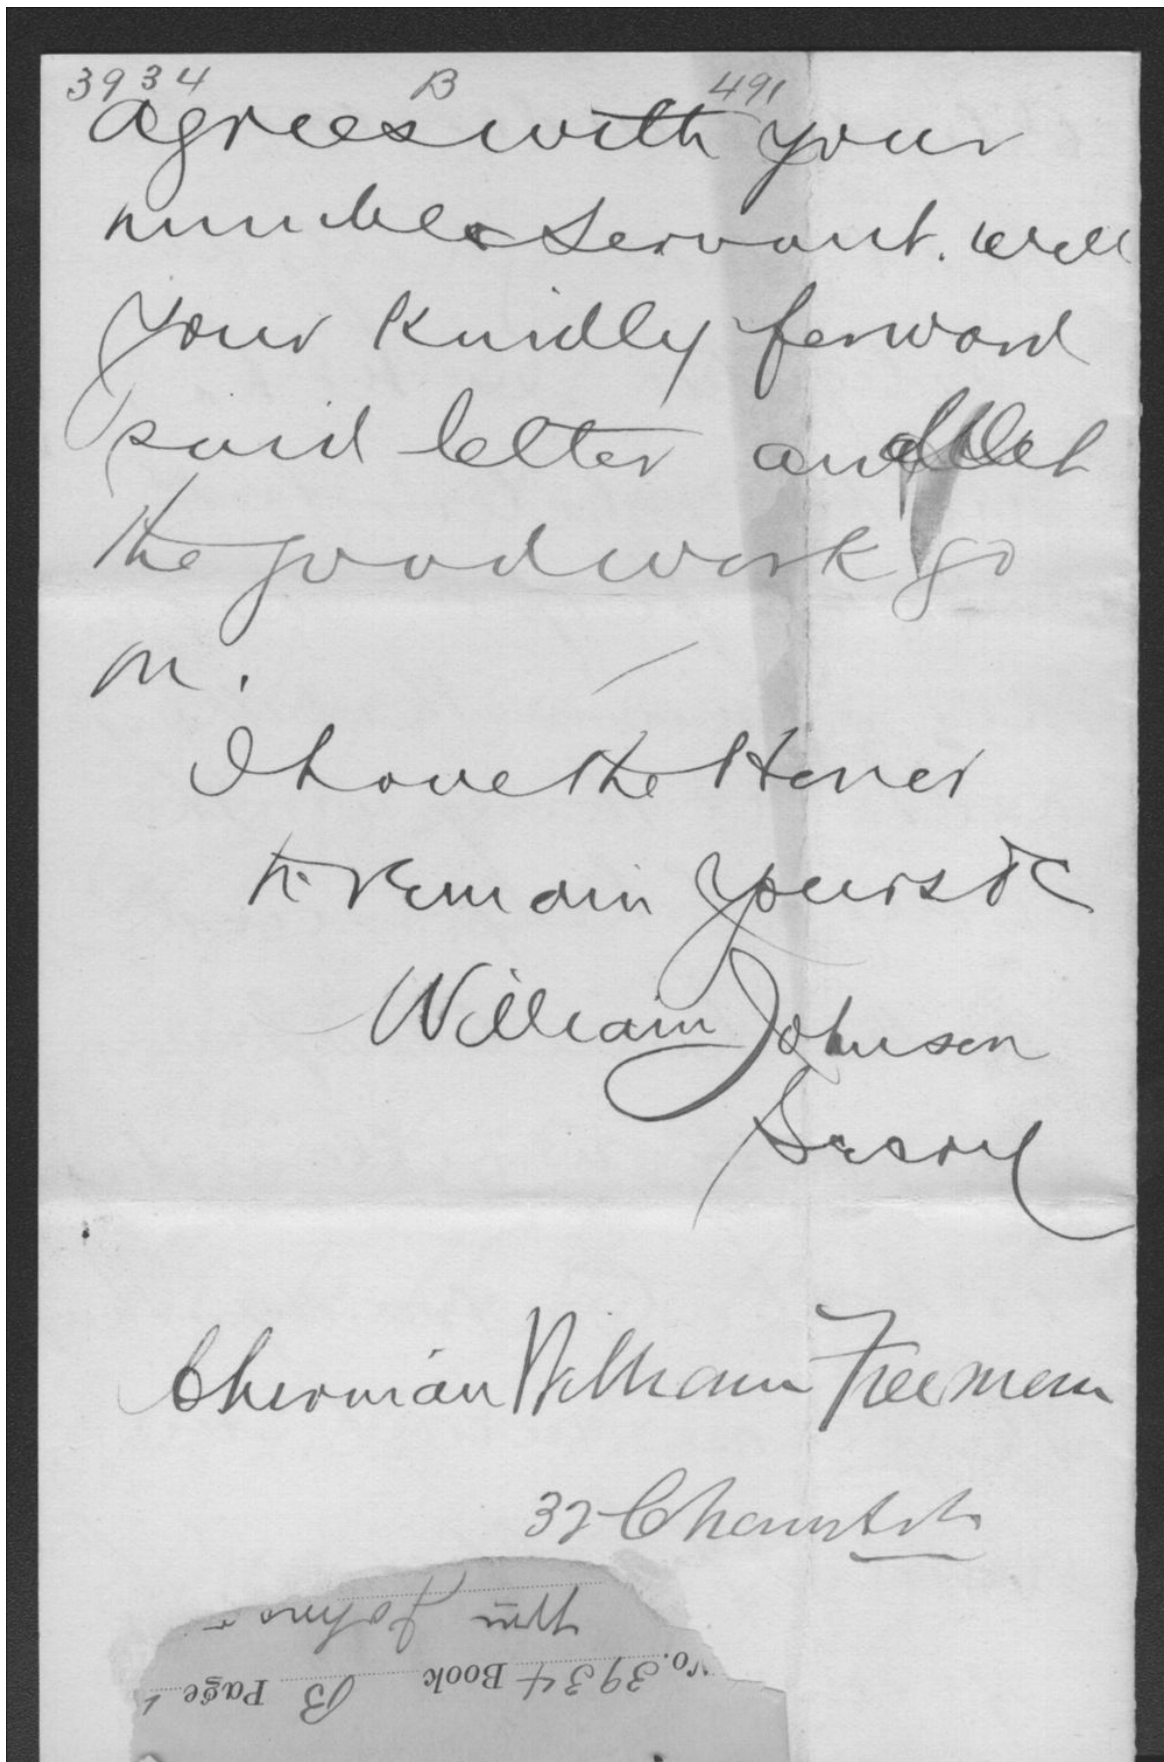 3934 B 491
agrees with your
number servant. will
your kindly forward
said letter and let
the good work go
on.
I have the Honer
to remain yours &c
William Johnson
Chierman William Freeman
32
Wm Johns
No. 3934 Book B Page